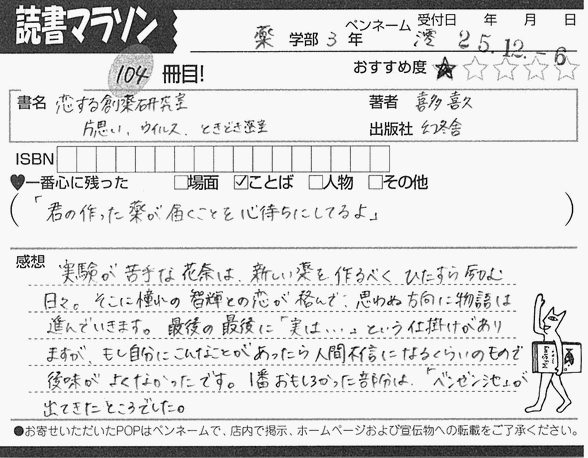 読書マラソン
薬 学部 3 年 ペンネーム 澪 受付日 年 月 日
25.12.-6
104 冊目! おすすめ度 ★☆☆☆☆
書名 恋する創薬研究室 著者 喜多喜久
片思い、ウイルス、ときどき密室 出版社 幻冬舎
ISBN
♥一番心に残った □場面 ☑ことば □人物 □その他
(「君の作った薬が届くことを心待ちにしてるよ」)
感想 実験が苦手な花奈は、新しい薬を作るべくひたすら励む
日々。そこに憧れの智輝との恋が絡んで、思わぬ方向に物語は
進んでいきます。最後の最後に「実は…」という仕掛けがあり
ますが、もし自分にこんなことがあったら人間不信になるくらいのもので
後味がよくなかったです。1番おもしろかった部分は、「ベンゼン池」が
出てきたところでした。
●お寄せいただいたPOPはペンネームで、店内で掲示、ホームページおよび宣伝物への転載をご了承ください。